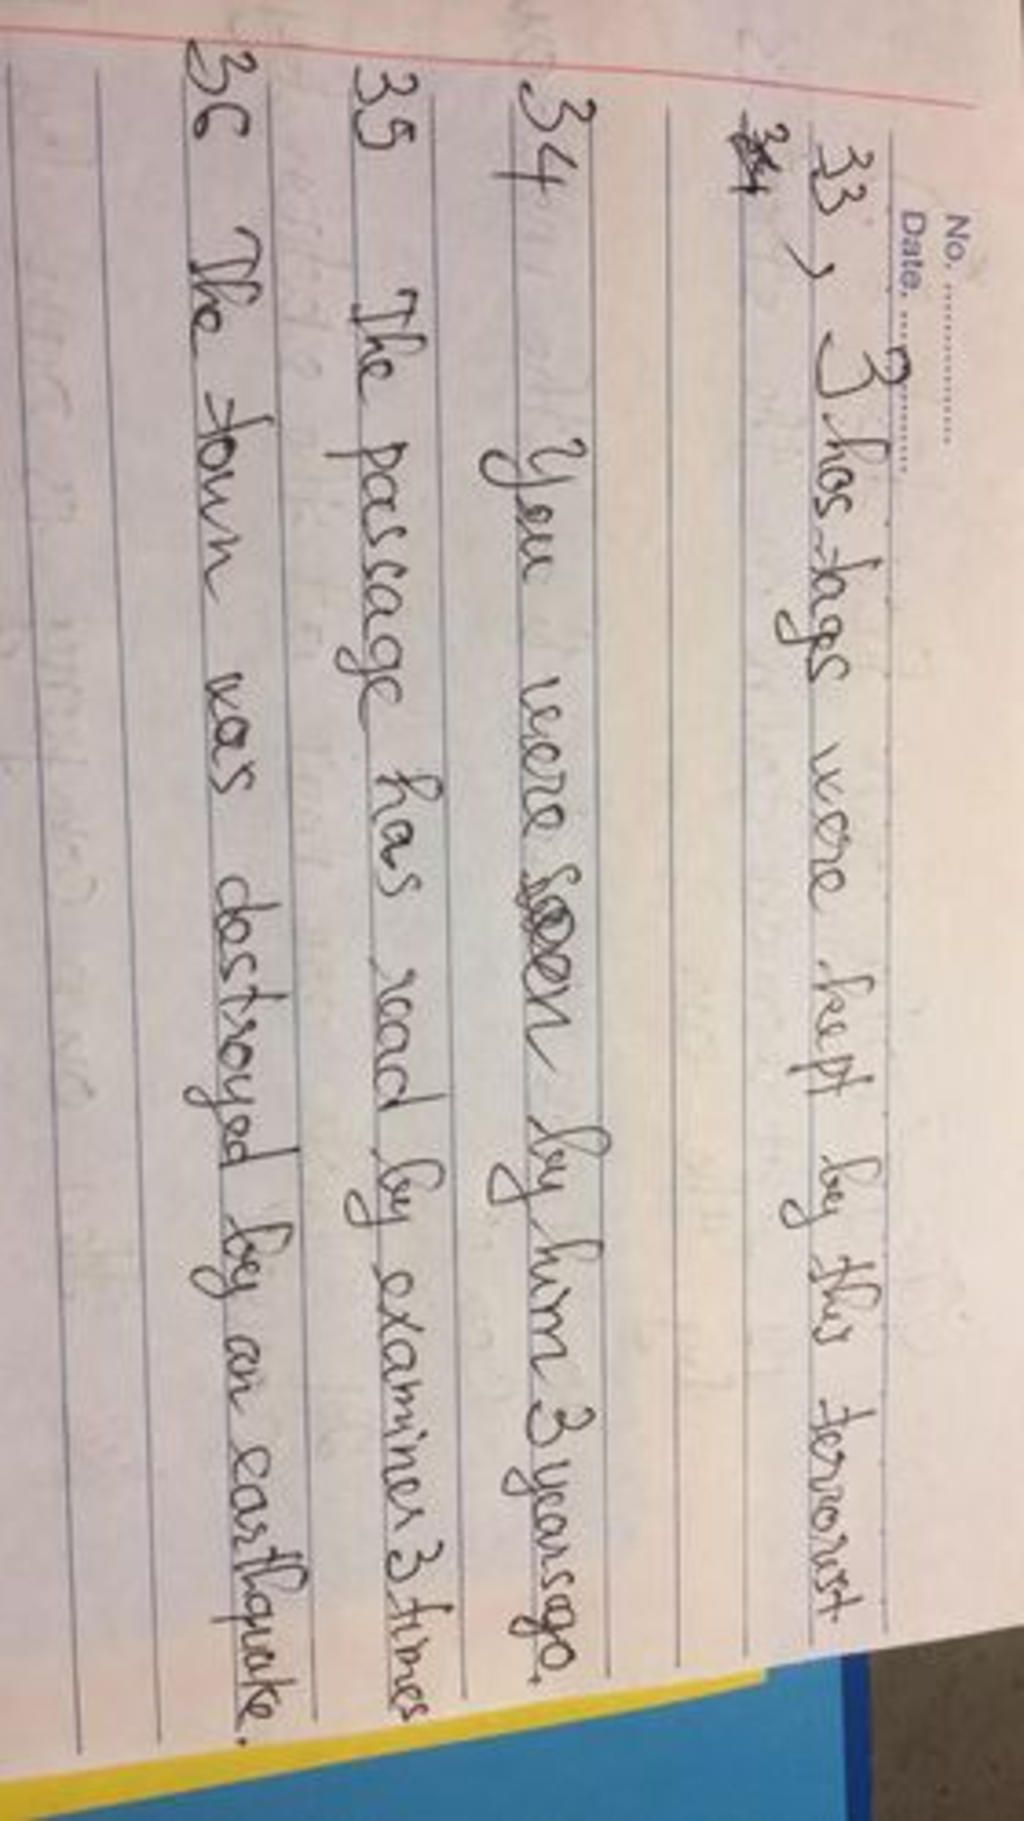 No. ..................
Date. ..................
33, 3 hostages were kept by this terrorist
34 You were seen by him 3 years ago.
35 The passage has read by examiner 3 times
36 The town was destroyed by an earthquake.